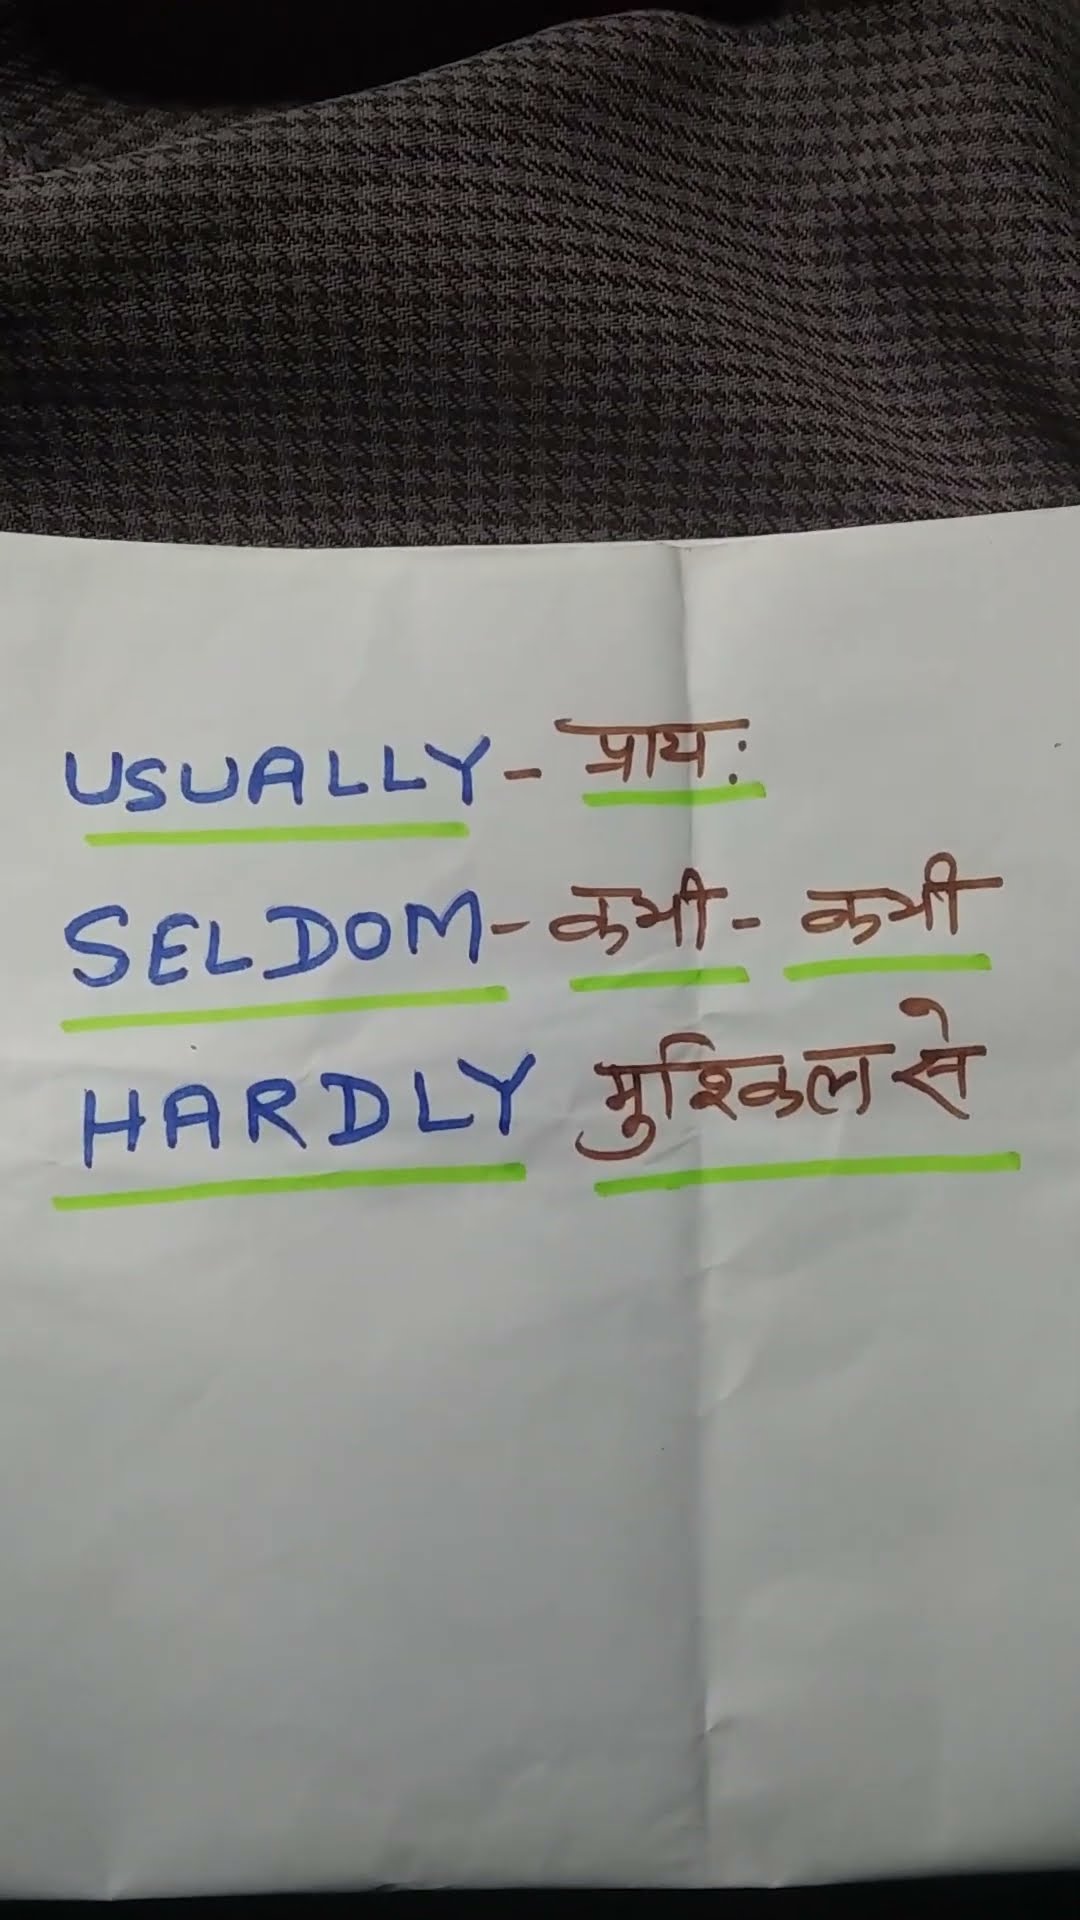 USUALLY - प्राय:
SELDOM - कभी - कभी
HARDLY मुश्किल से